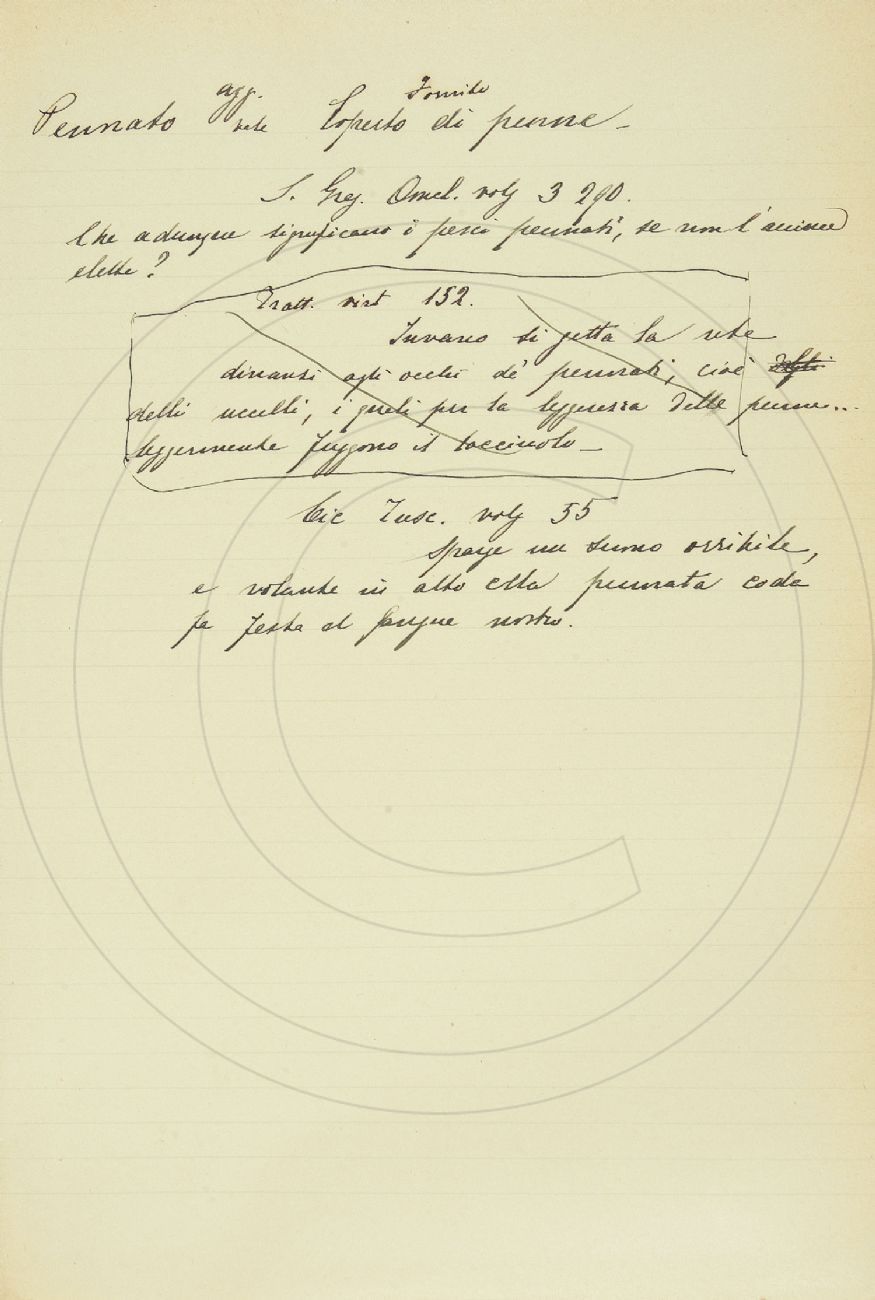 Pennato agg. Fornito
Coperto di penne _
S. Greg. Omel. volg 3 290.
Che adunque significano i pesci pennati, se non l'anime
elette?
Tratt. virt 152.
Invano si getta la rete
dinanzi agli occhi de' pennati, cioè
delli uccelli, i quali per la leggerezza delle penne...
leggermente fuggono il lacciuolo _
Cic Tusc. volg 55
Sparge un sumo orribile,
e volante in alto colla pennata coda
fa festa al sangue nostro.